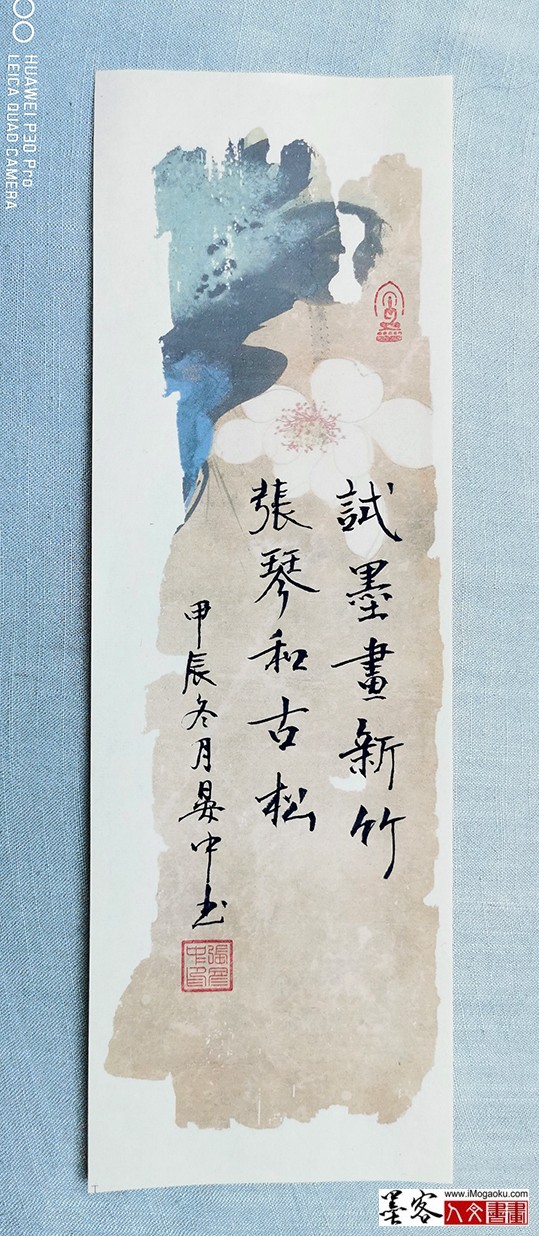 試墨畫新竹
張琴和古松
甲辰冬月晏中书
HUAWEI P30 Pro
LEICA QUAD CAMERA
墨客
www.iMogaoku.com
人文書畫